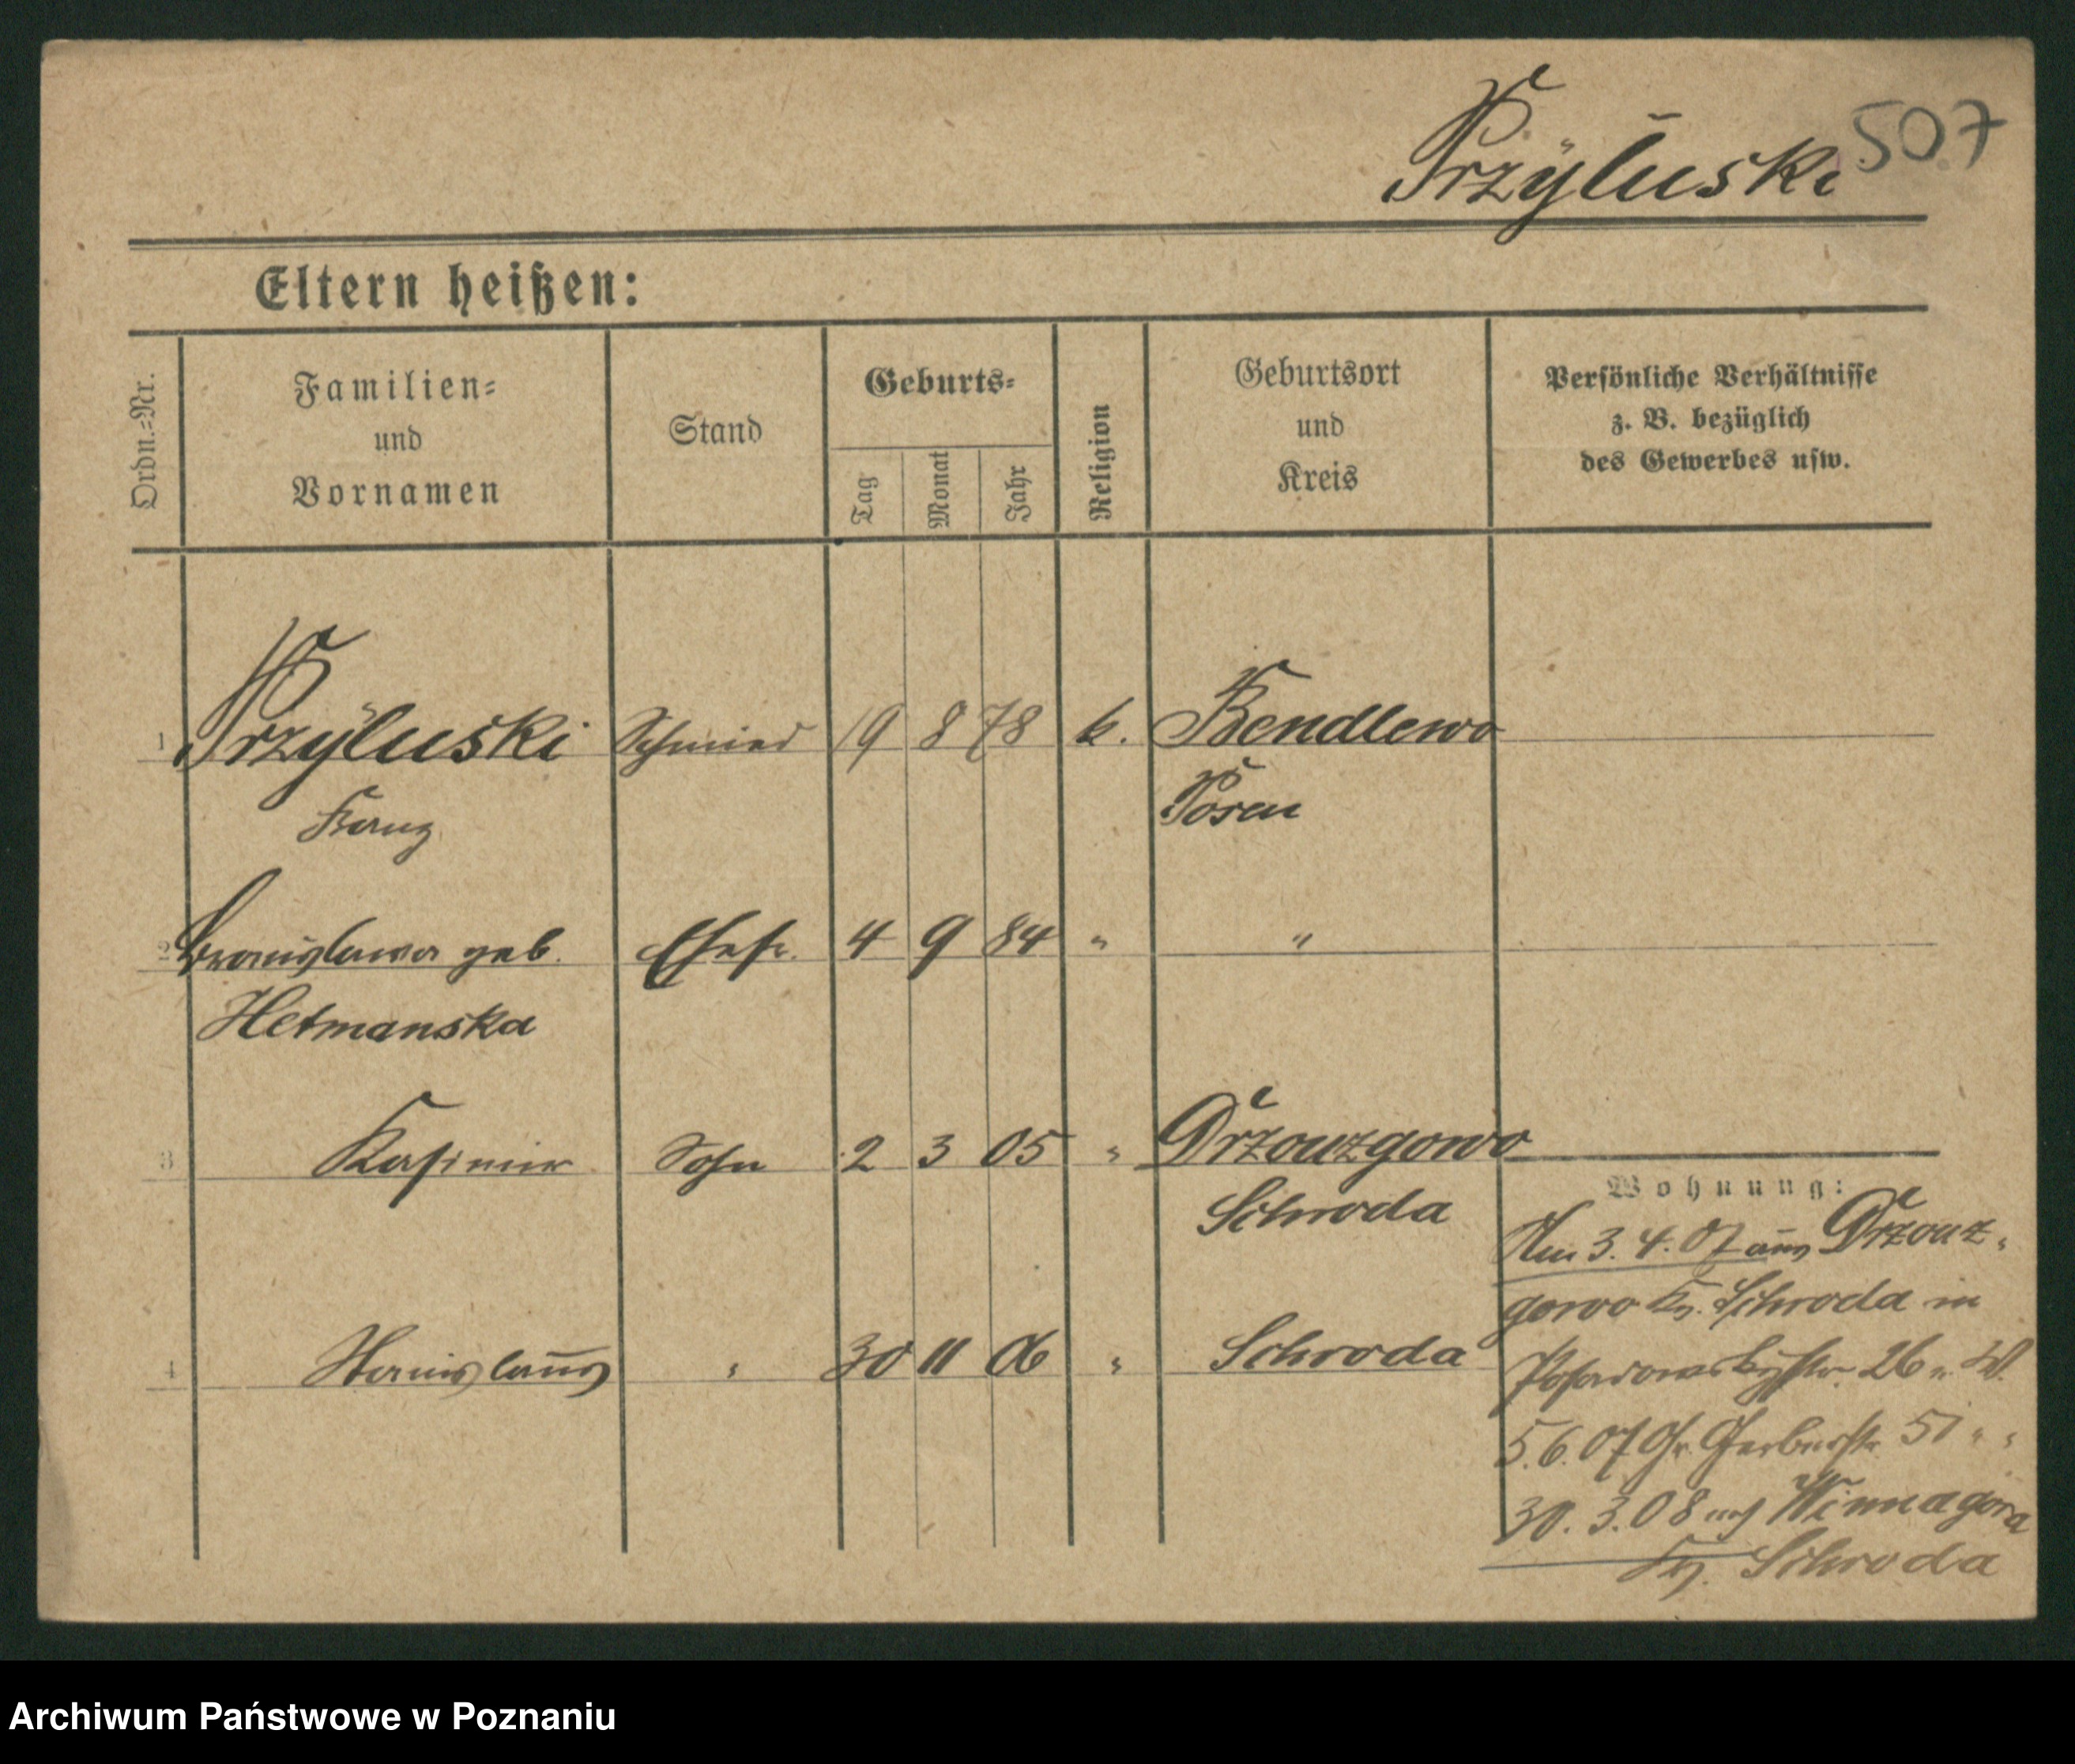 Przÿluski 507
Eltern heißen:
Ordn.-Nr.
Familien-
und
Vornamen
Stand
Geburts-
Tag
Monat
Jahr
Religion
Geburtsort
und
Kreis
Persönliche Verhältnisse
z. B. bezüglich
des Gewerbes usw.
1 Przÿluski Schmied 19 8 78 k. Bendlewo
Franz Posen
2 Bronislawa geb. Ehefr. 4 9 84 " "
Hetmanska
3 Kasimir Sohn 2 3 05 " Drzonzgowo
Schroda
4 Stanislaus " 30 11 06 " Schroda
Wohnung:
Am 3. 4. 07 aus Drzonz-
gowo Kr. Schroda in
Posadowskystr. 26 W.
5.6.07 Gr. Gerberstr. 51 " "
30. 3. 08 nach Winnagora
Kr. Schroda
Archiwum Państwowe w Poznaniu